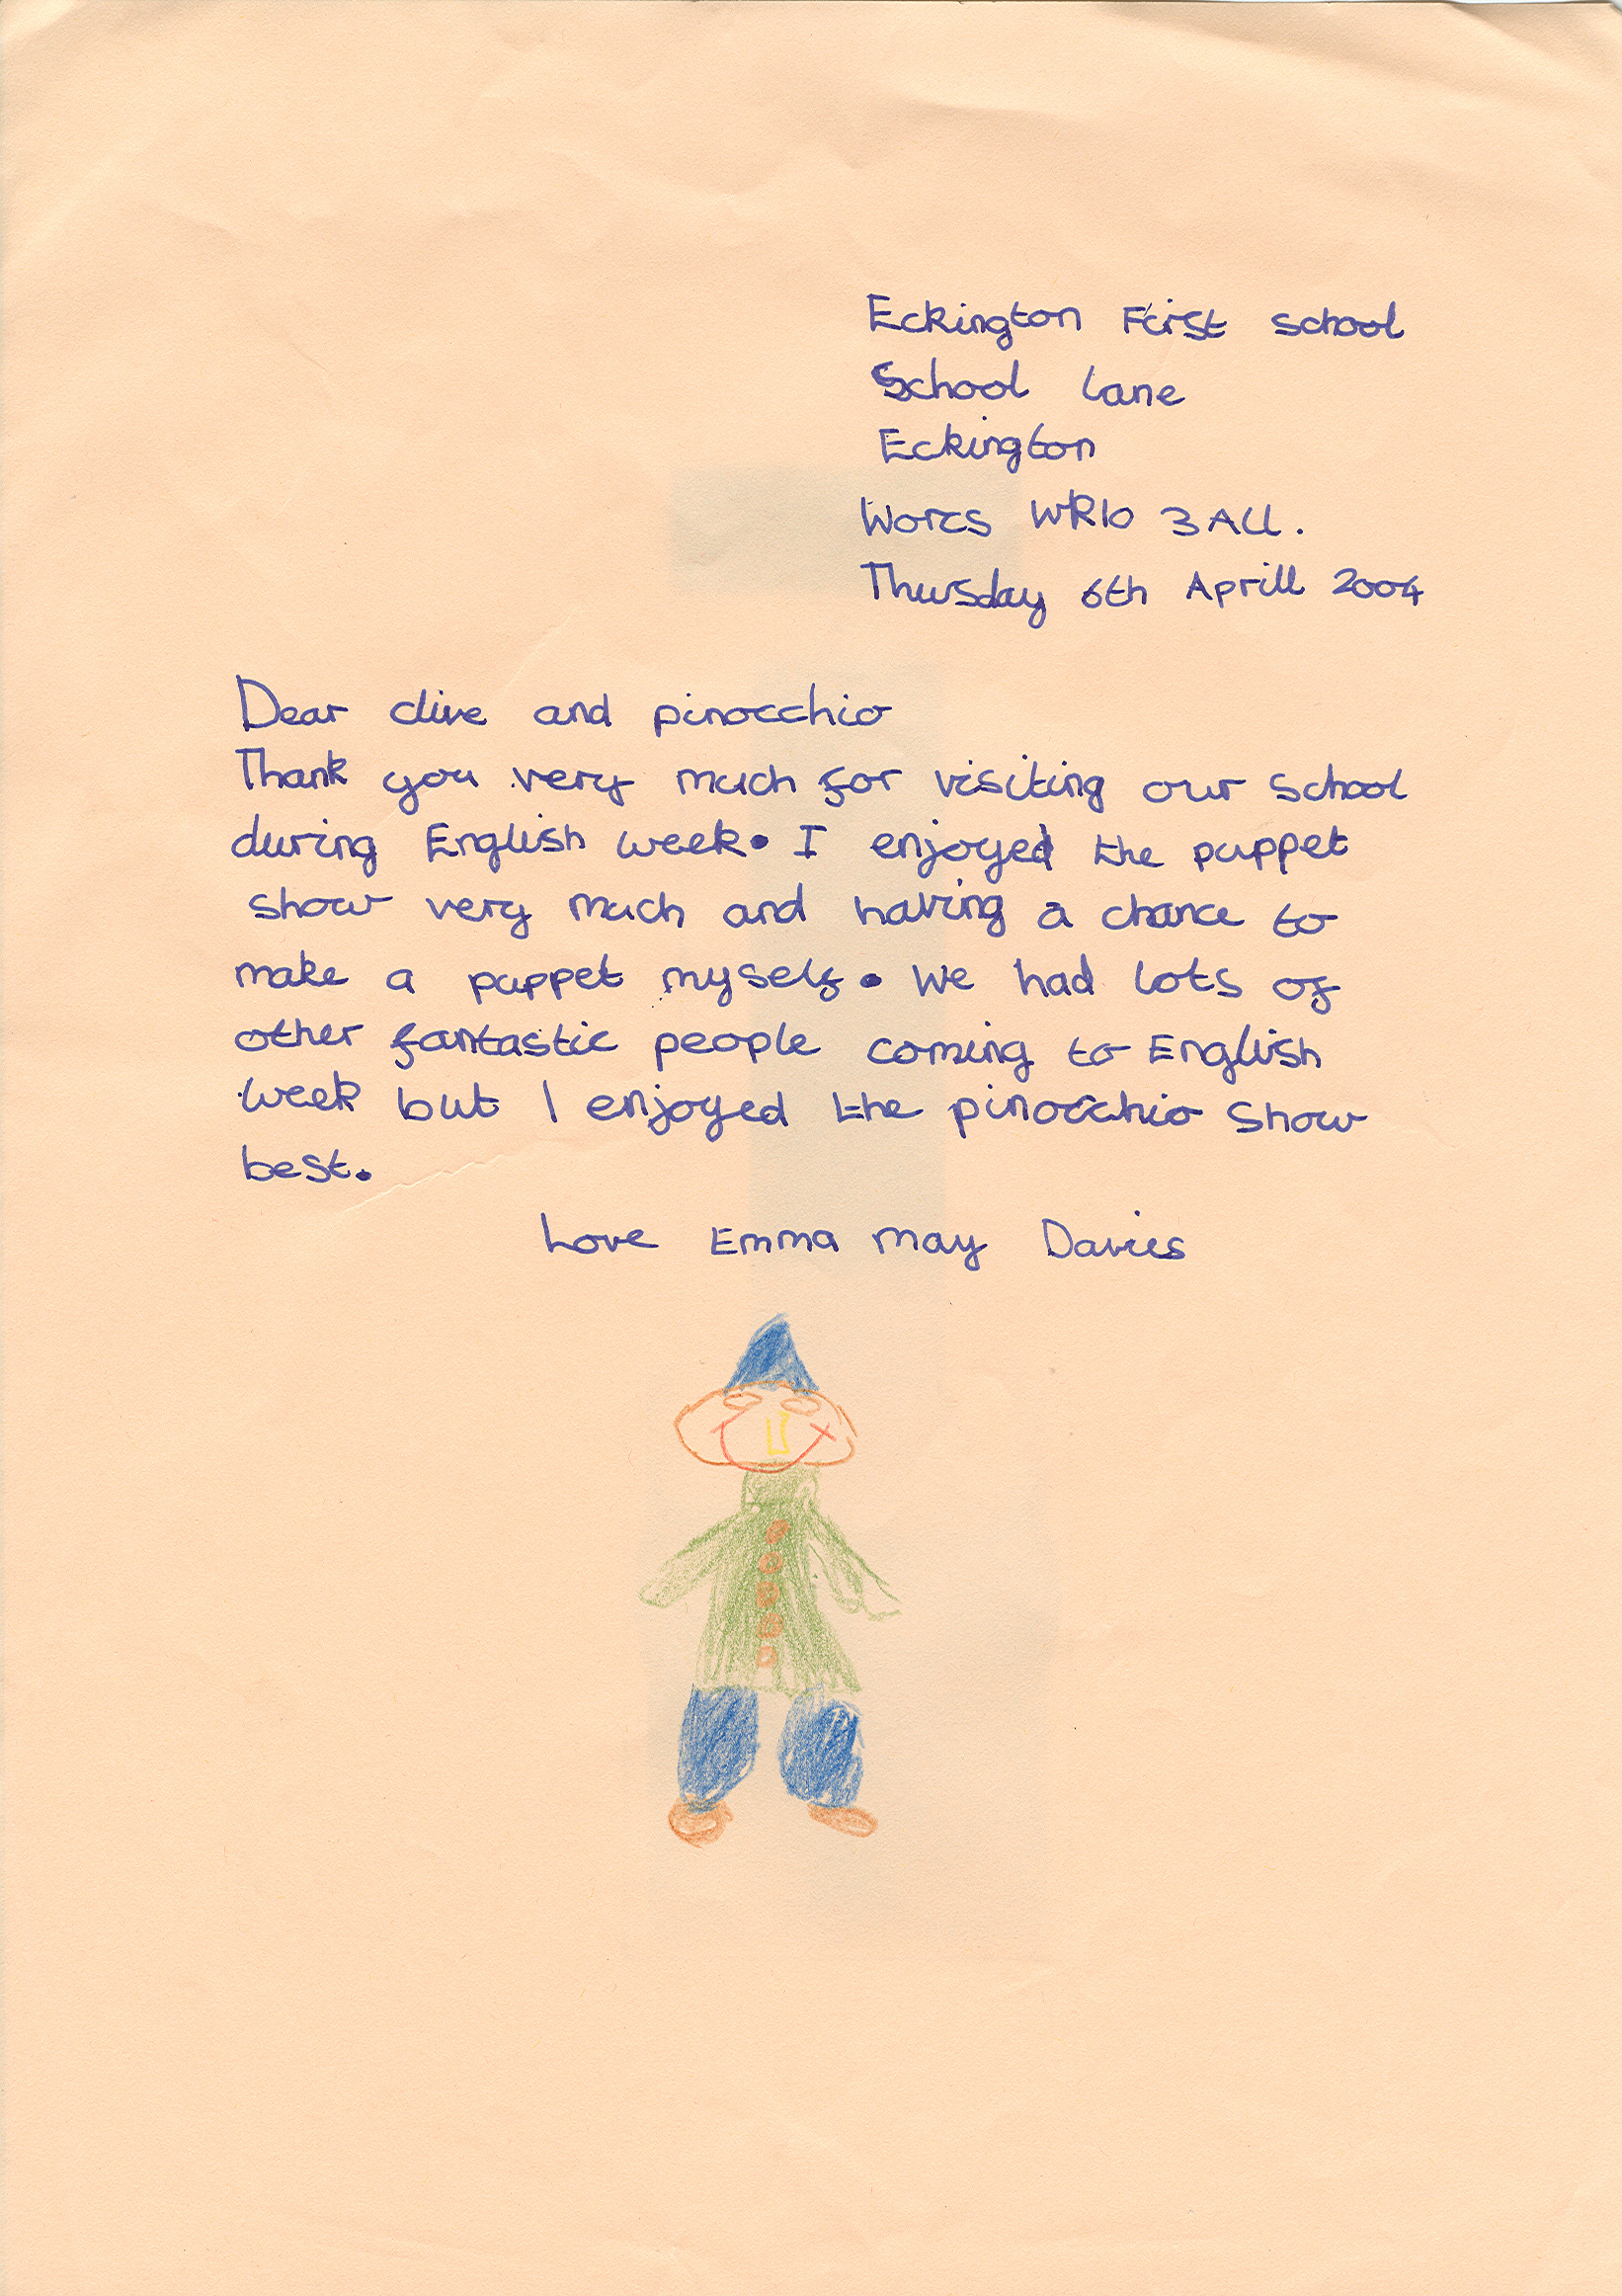 Eckington First school
School Lane
Eckington
Worcs WR10 3AU.
Thursday 6th Aprill 2004
Dear clive and pinocchio
Thank you very much for visiting our school
during English week. I enjoyed the puppet
show very much and having a chance to
make a puppet myself. We had lots of
other fantastic people coming to English
week but I enjoyed the pinocchio show
best.
Love Emma may Davies